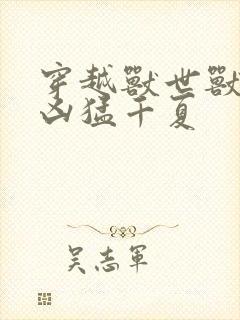 穿越獸世獸
凶猛千夏
吴志軍